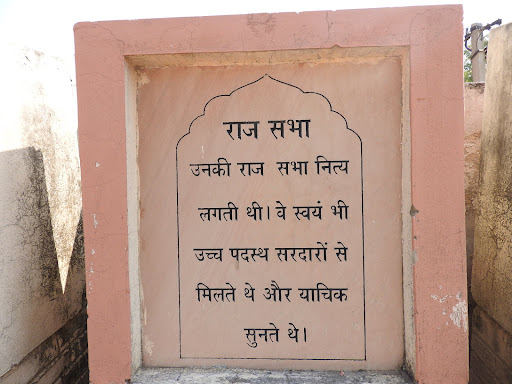 राज सभा
उनकी राज सभा नित्य
लगती थी। वे स्वयं भी
उच्च पदस्थ सरदारों से
मिलते थे और याचिक
सुनते थे।